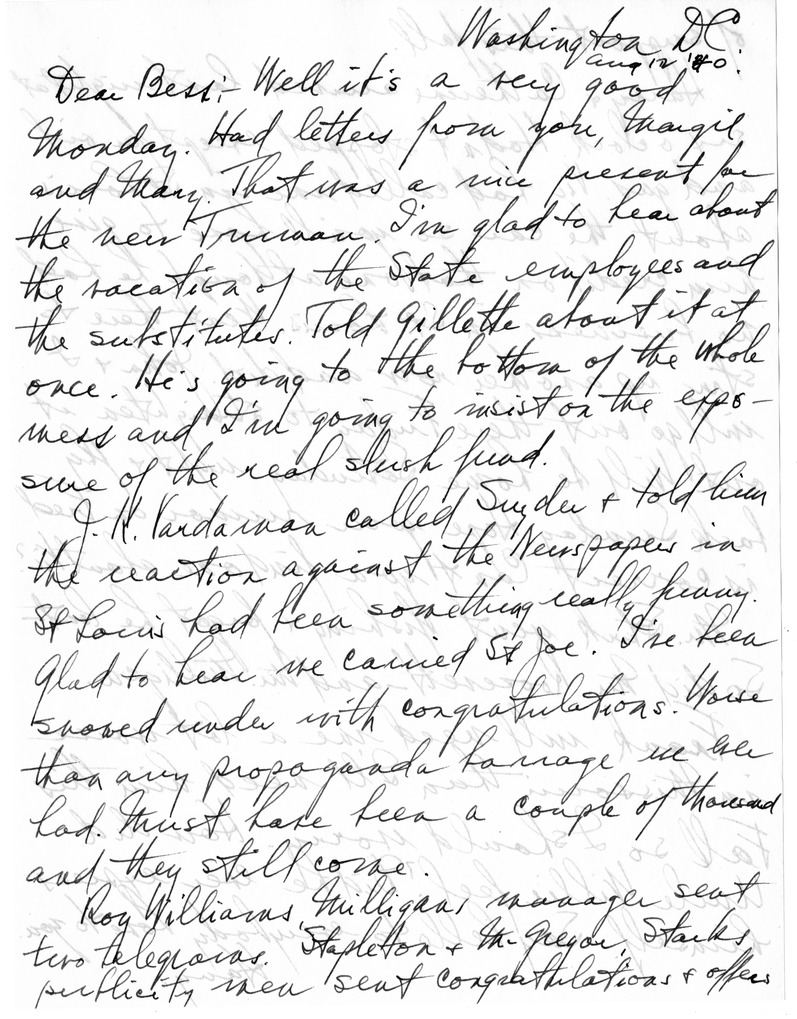 Washington DC.
Aug 12 '40.
Dear Bess:- Well it's a very good
Monday. Had letters from you, Margie
and Mary. That was a nice present for
the new Truman. I'm glad to hear about
the vacation of the State employees and
the substitutes. Told Gillette about it at
once. He's going to the bottom of the whole
mess and I'm going to insist on the expo-
sure of the real slush fund.
J.K. Vardaman called Snyder + told him
the reaction against the Newspapers in
St Louis had been something really funny.
Glad to hear we carried St Joe. I've been
snowed under with congratulations. Worse
than any propaganda barrage we ever
had. Must have been a couple of thousand
and they still come.
Roy Williams, Milligans manager sent
two telegrams. Stapleton + McGregor, Starks
publicity men sent congratulations + offers